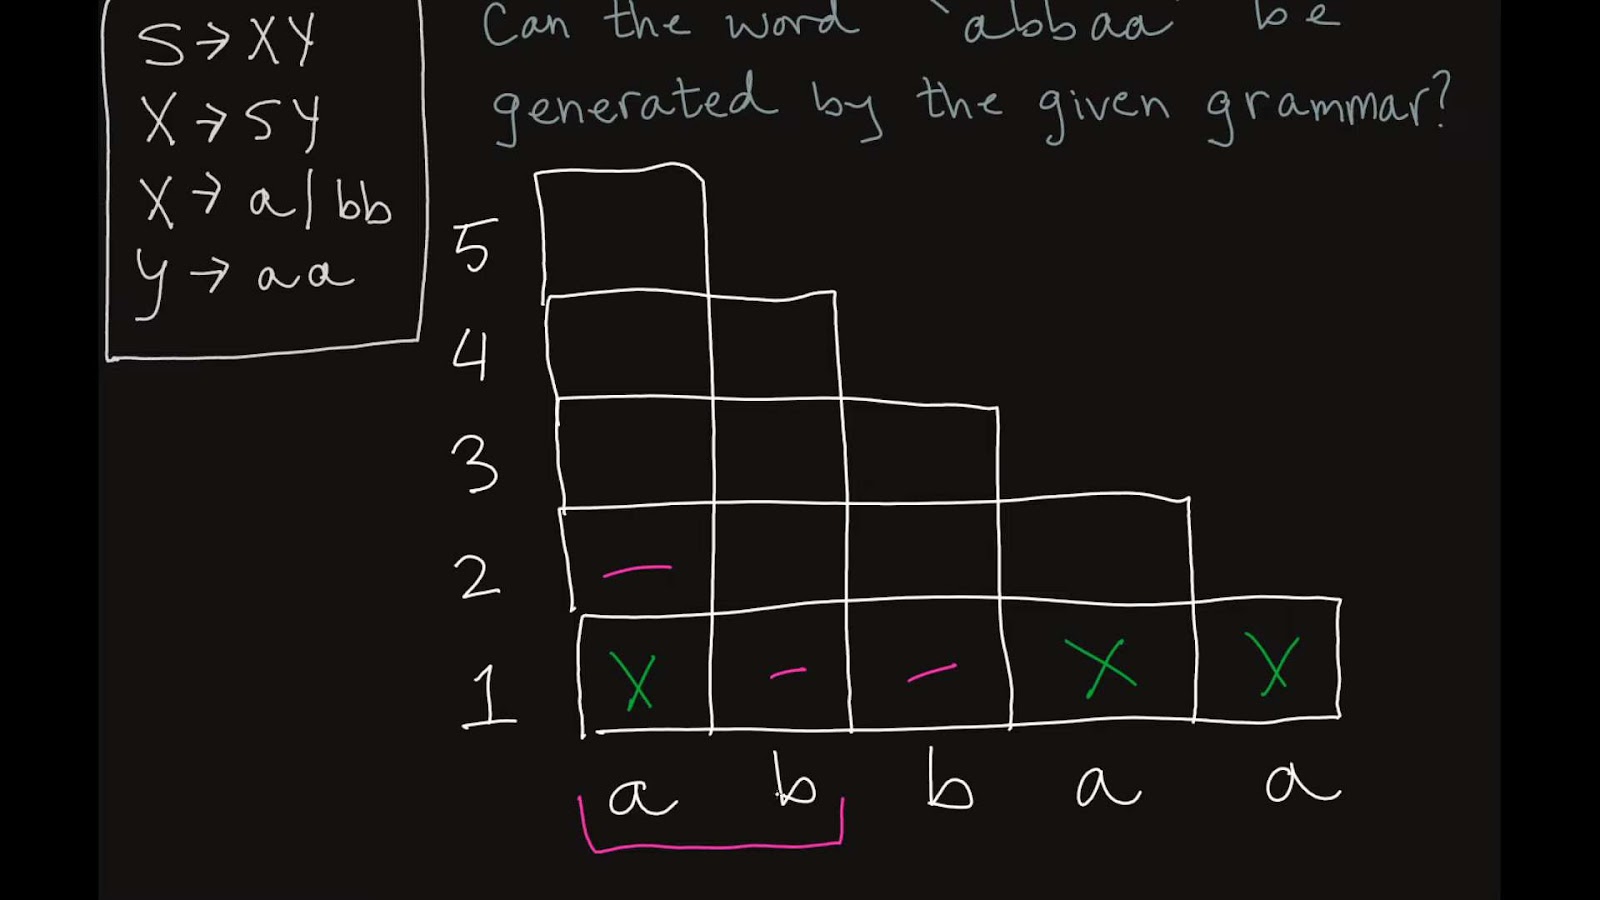 S → XY
X → SY
X → a | bb
Y → aa
Can the word `abbaa` be
generated by the given grammar?
5
4
3
2 —
1 X - - X X
a b b a a